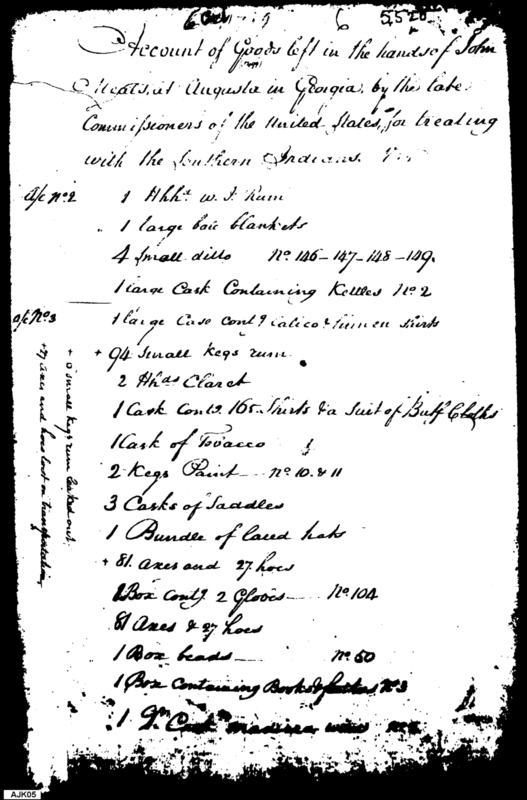 6 5526
Account of Goods left in the hands of John
Meals, at Augusta in Georgia, by the late
Commissioners of the United States, for treating
with the Southern Indians.
a/c No. 2 1 Hhd. w. I. Rum
1 large bale blankets
4 Small ditto No. 146-147-148-149.
1 large Cask Containing Kettles No 2
a/c No. 3 1 large Case contg. calico & linnen shirts
+ 94 Small Kegs rum.
2 Hhds Claret
1 Cask contg. 165 Shirts & a Suit of Buff Cloths
1 Cask of Tobacco
2 Kegs Paint No. 10. & 11
3 Casks of Saddles
1 Bundle of laced hats
+ 81. Axes and 27 hoes
1 Box contg. 2 Gloves No. 104
81 Axes & 27 hoes
1 Box beads No. 50
1 Box Containing Books & No 3
1 Qr. Cask madeira wine
small kegs rum leaked out
axes and hoes lost on transportation
AJK05